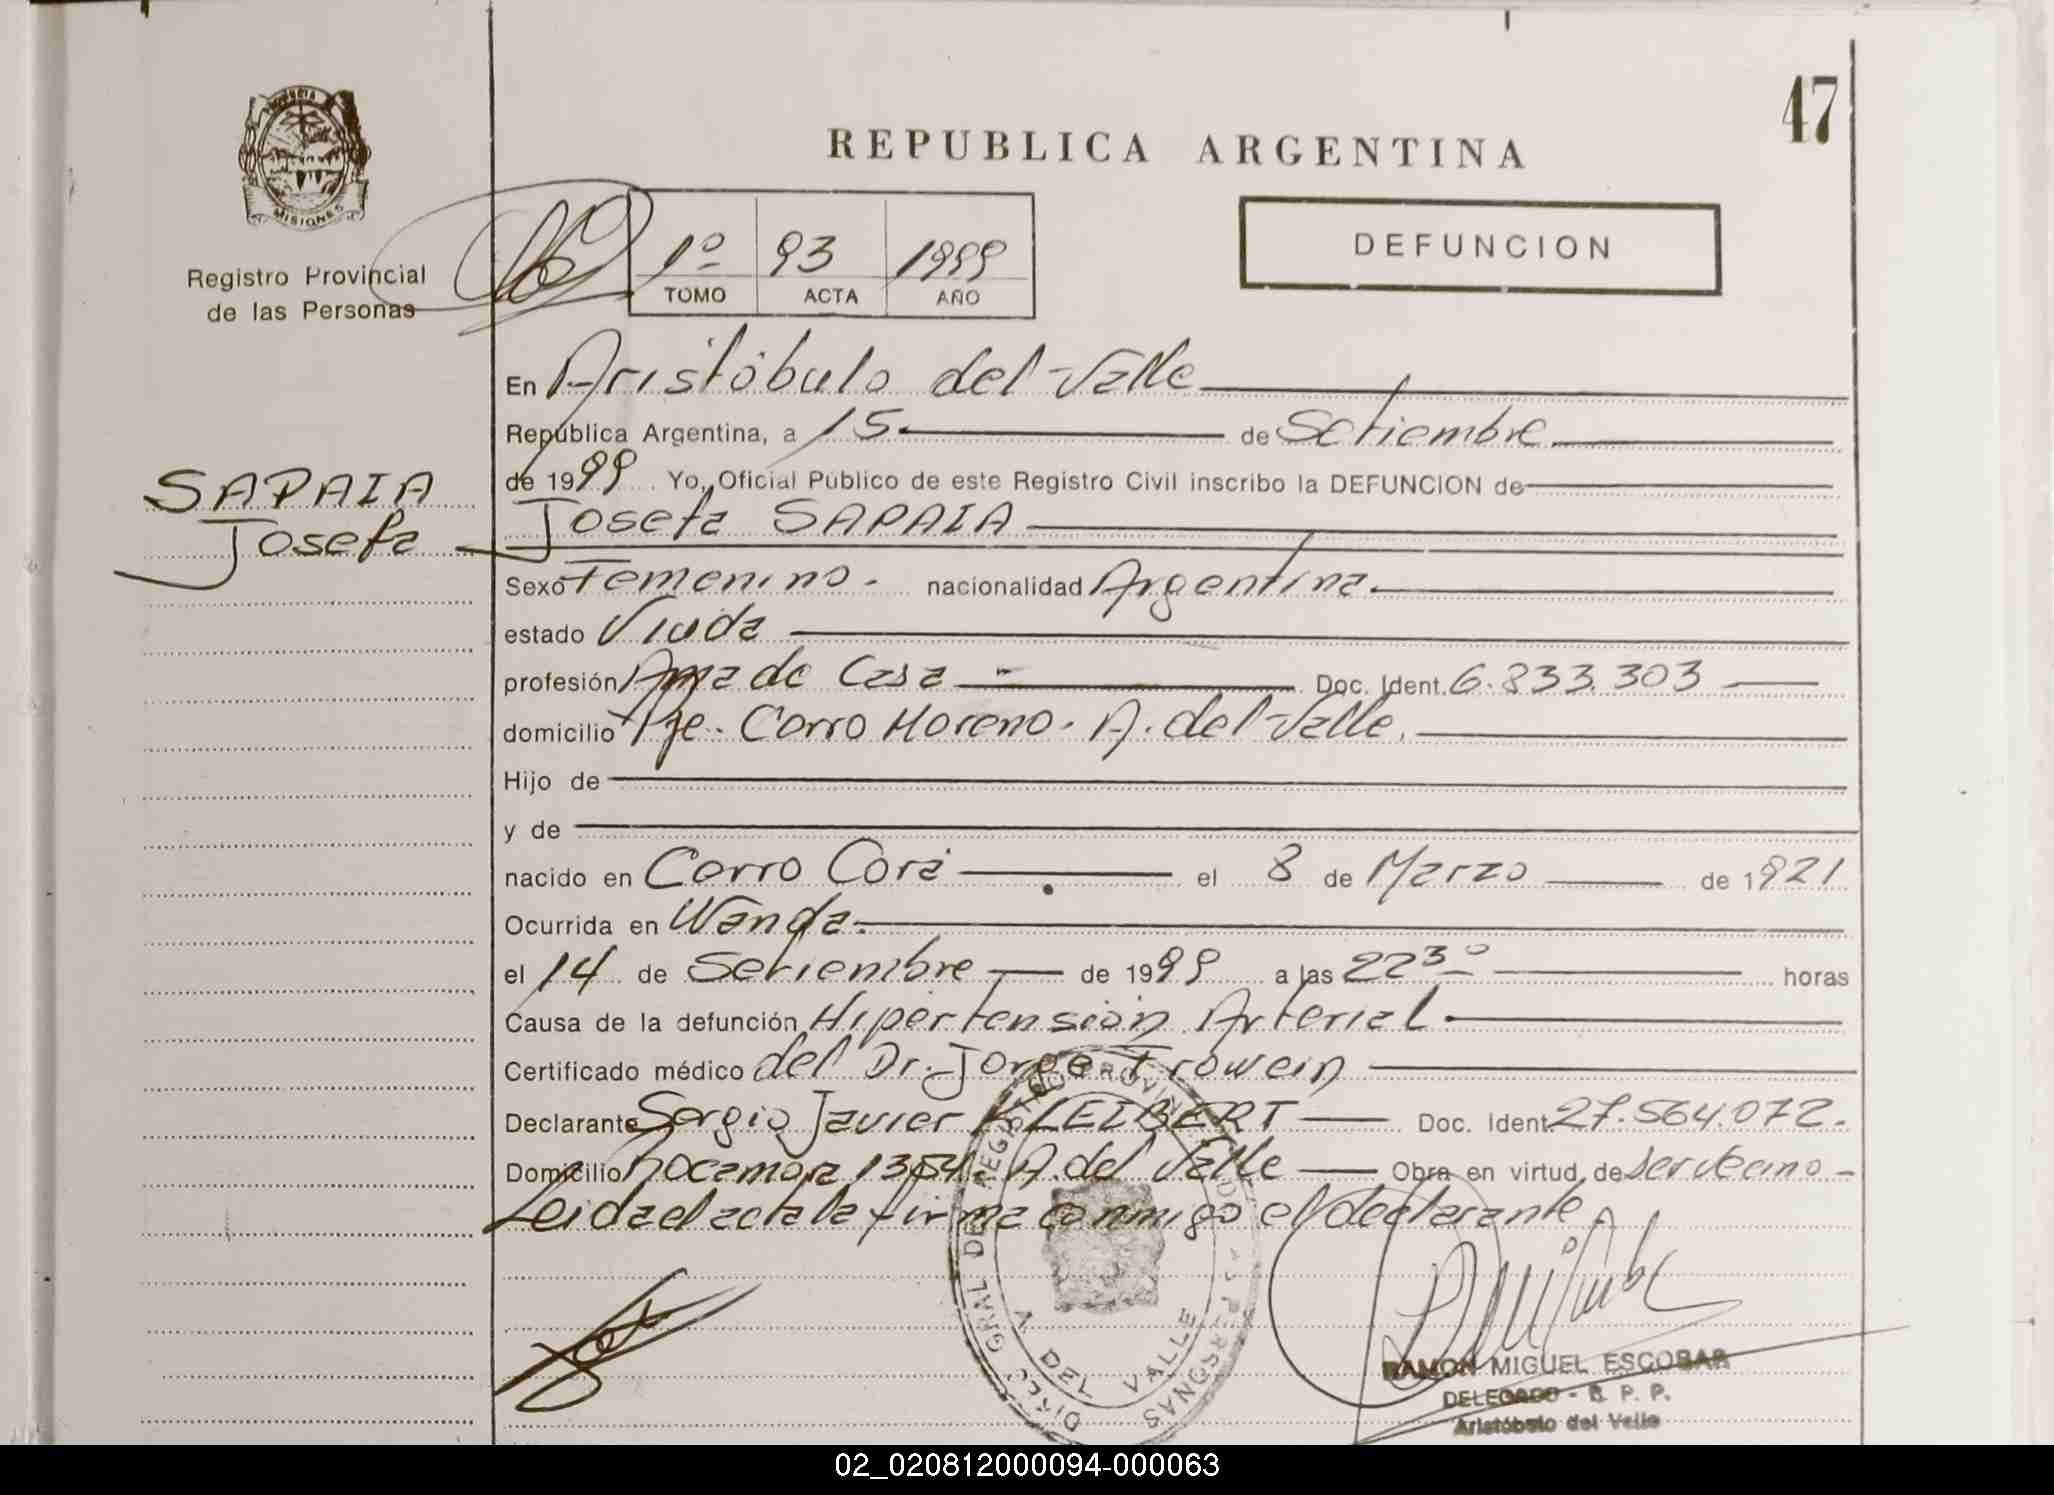 47
PROVINCIA
MISIONES
REPUBLICA ARGENTINA
Registro Provincial
de las Personas
1º 93 1999
TOMO ACTA AÑO
DEFUNCION
En Aristóbulo del Valle
República Argentina, a 15 de Setiembre
de 1999. Yo, Oficial Público de este Registro Civil inscribo la DEFUNCION de
SAPAIA
Josefa
Josefa SAPAIA
Sexo Femenino. nacionalidad Argentina.
estado Viuda
profesión Ama de Casa Doc. Ident. 6.833.303
domicilio Pje. Corro Moreno. A. del Valle.
Hijo de
y de
nacido en Corro Corá el 8 de Marzo de 1921
Ocurrida en Wanda.
el 14 de Setiembre de 1999 a las 22³⁰ horas
Causa de la defunción Hipertensión Arterial.
Certificado médico del Dr. Jorge Frowein
Declarante Sergio Javier KLEIBERT Doc. Ident 27.564.072.
Domicilio 1354. A. del Valle Obra en virtud de ser vecino
Leida el acta la firma conmigo el declarante
DIREC. GRAL. DE REGISTRO PROVIN PERSONAS
DEL VALLE
RAMON MIGUEL ESCOBAR
DELEGADO - R. P. P.
Aristóbulo del Valle
02_020812000094-000063